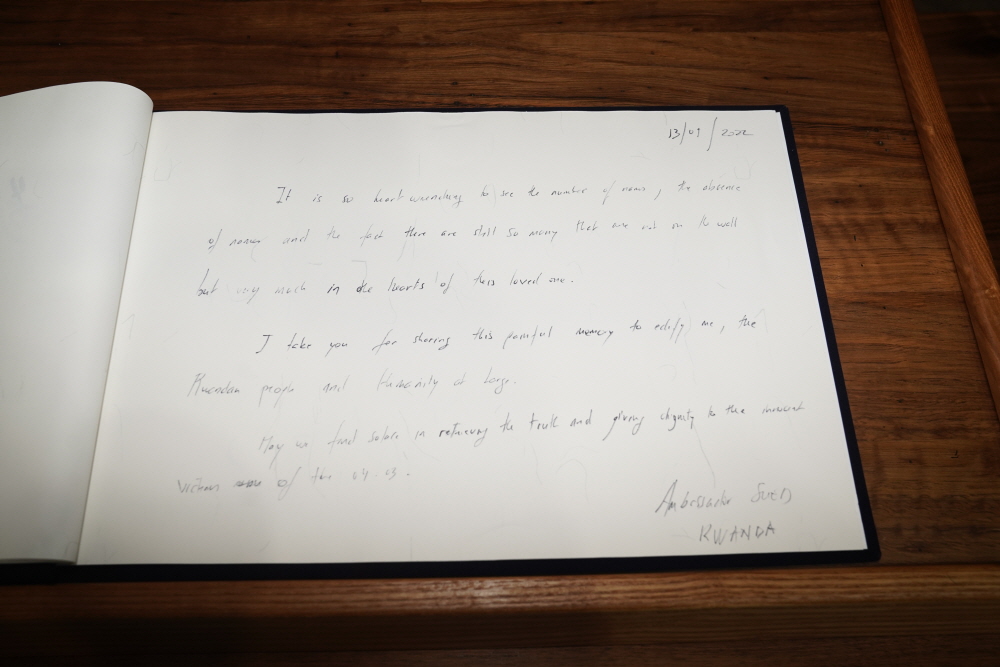 13/09/2022
It is so heart wrenching to see the number of names, the absence
of names and the fact there are still so many that are not on the wall
but very much in the hearts of their loved one.
I take you for sharing this painful memory to edify me, the
Rwandan people and Humanity at large.
May we find solace in retrieving the truth and giving dignity to the innocent
victims of the
Ambassador
RWANDA